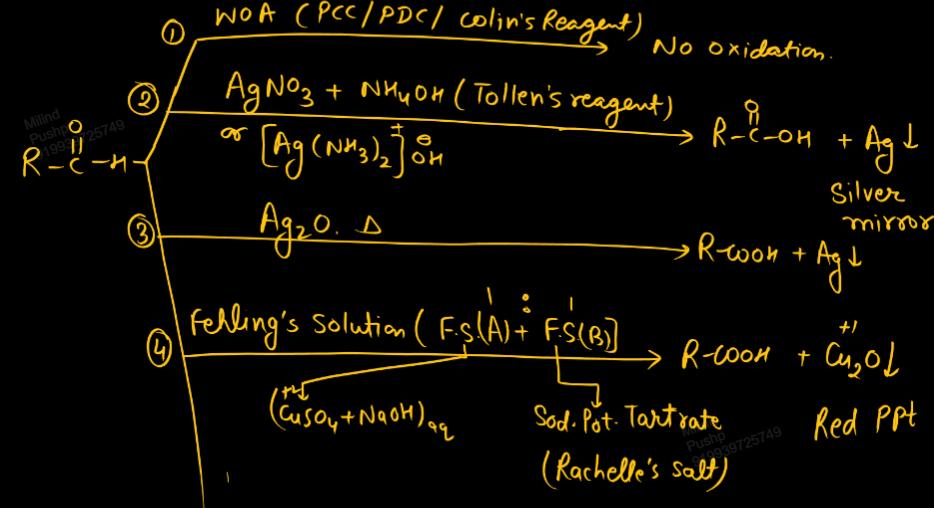 ① WOA (PCC/PDC/ Colin's Reagent)
No oxidation.
② AgNO₃ + NH₄OH (Tollen's reagent)
or [Ag(NH₃)₂]⁺ ⊖OH
R-C(=O)-OH + Ag↓
Silver
mirror
R-C(=O)-H
③ Ag₂O. Δ
R-COOH + Ag↓
④ Fehling's Solution ( F.S.(A) + F.S(B)]
1 : 1
R-COOH + Cu₂O↓
+1
Red PPt
+2
(CuSO₄ + NaOH)aq
Sod. Pot. Tartrate
(Rachelle's salt)
Milind
Pushp
919939725749
Pushp
919939725749